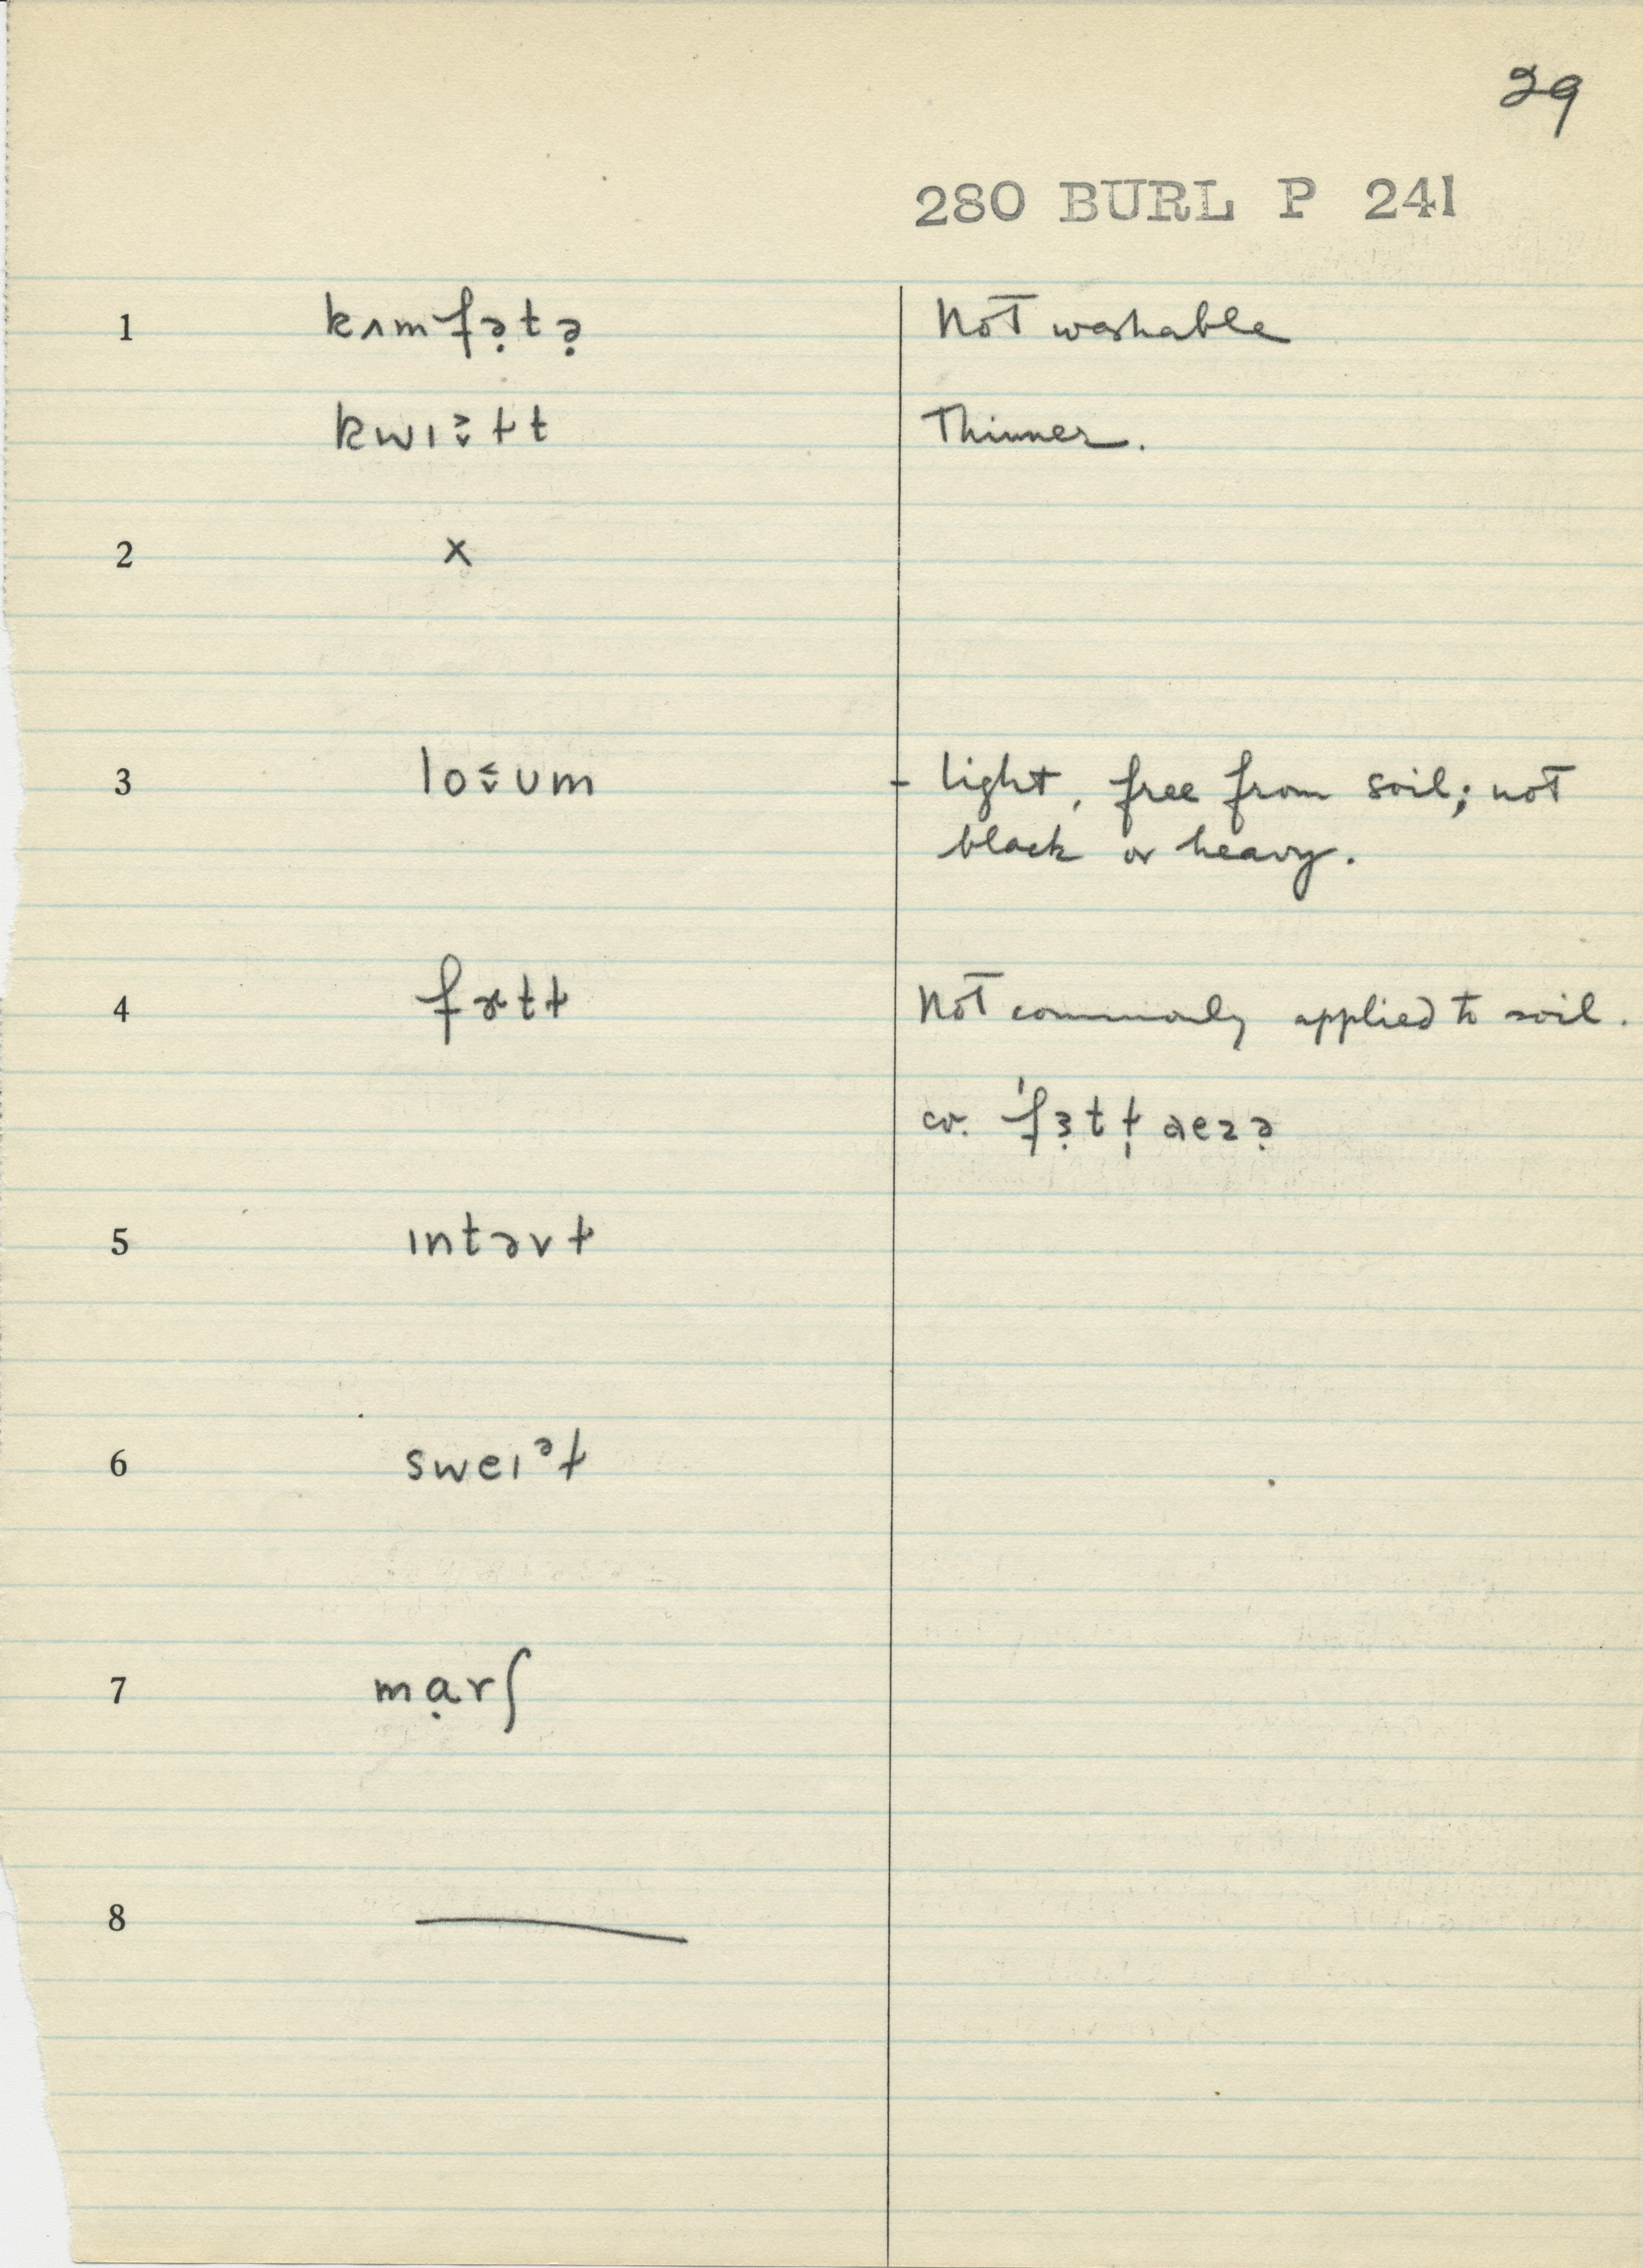 29
280 BURL P 241
1 kʌmfə̣tə̣ Not washable
kwɪ t t Thinner.
2 x
3 lo ʊm - light, free from soil; not
black or heavy.
4 Not commonly applied to soil.
cv.
5 ɪntərvɫ
6 sweɪᵊɫ
7 mạrʃ
8